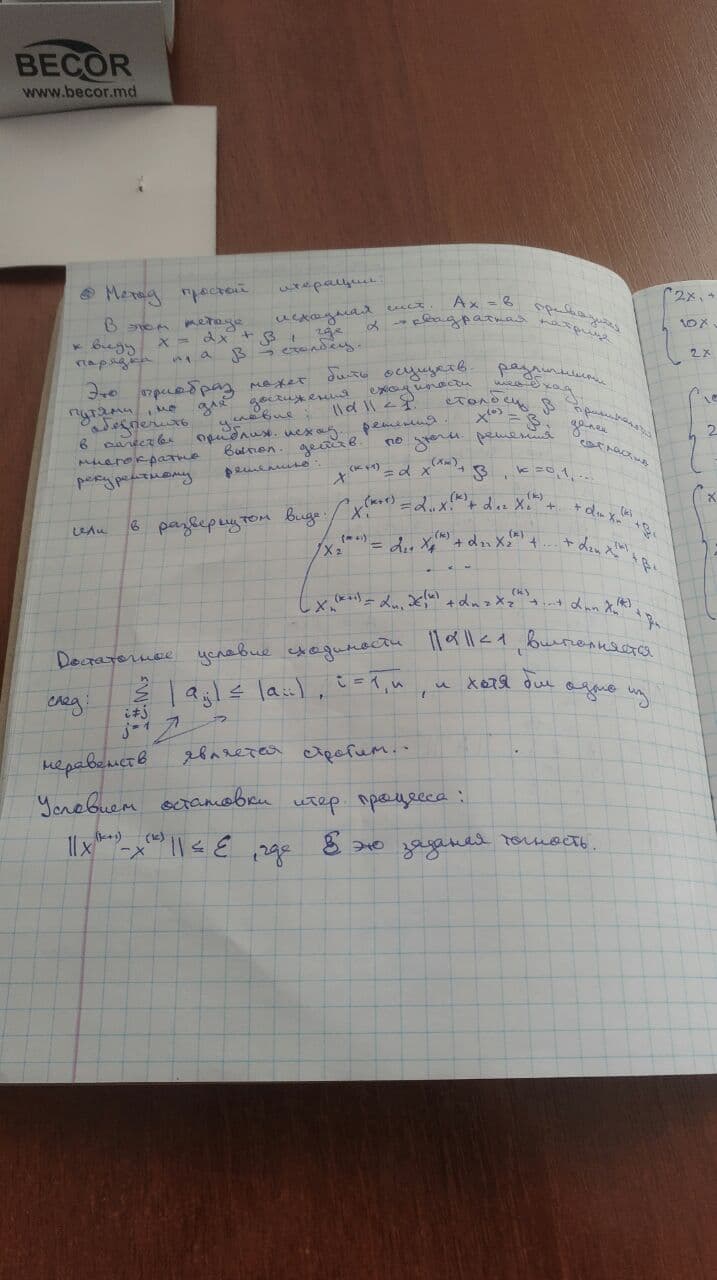 BECOR
www.becor.md
Метод простой итерации:
В этом методе исходная сист. Ax = в приводится
к виду x = αx + β, где α → квадратная матрица
порядка n, а β → столбец.
Это приобраз может быть осуществ. различными
путями, но для достижения сходимости необход.
обеспечить условие: ||α|| < 1. столбец β принимают
в качестве приближ. исход. решения. x⁽⁰⁾ = β, далее
многократно выпол. действ. по уточн. решения согластно
рекурентному решению:
x⁽ᵏ⁺¹⁾ = α x + β, k = 0,1,...
или в развернутом виде:
x₁⁽ᵏ⁺¹⁾ = α₁₁x₁⁽ᵏ⁾ + α₁₂ x₂⁽ᵏ⁾ + .. + α₁ₙ xₙ⁽ᵏ⁾ + β₁
x₂⁽ᵏ⁺¹⁾ = α₂₁ x₁⁽ᵏ⁾ + α₂₂ x₂⁽ᵏ⁾ + ... + α₂ₙ xₙ⁽ᵏ⁾ + β₂
...
xₙ⁽ᵏ⁺¹⁾ = αₙ₁ x₁⁽ᵏ⁾ + αₙ₂ x₂⁽ᵏ⁾ + ... + αₙₙ xₙ⁽ᵏ⁾ + βₙ
Достаточное условие сходимости ||α|| < 1, выполняется
след: n Σ i≠j j=1 |aᵢⱼ| ≤ |aᵢᵢ|, i = 1,n, и хотя бы одно из
неравенств является строгим..
Условием остановки итер. процесса:
||x⁽ᵏ⁺¹⁾ - x⁽ᵏ⁾|| ≤ ε, где ε это заданая точность.
2x₁ +
10x
2x